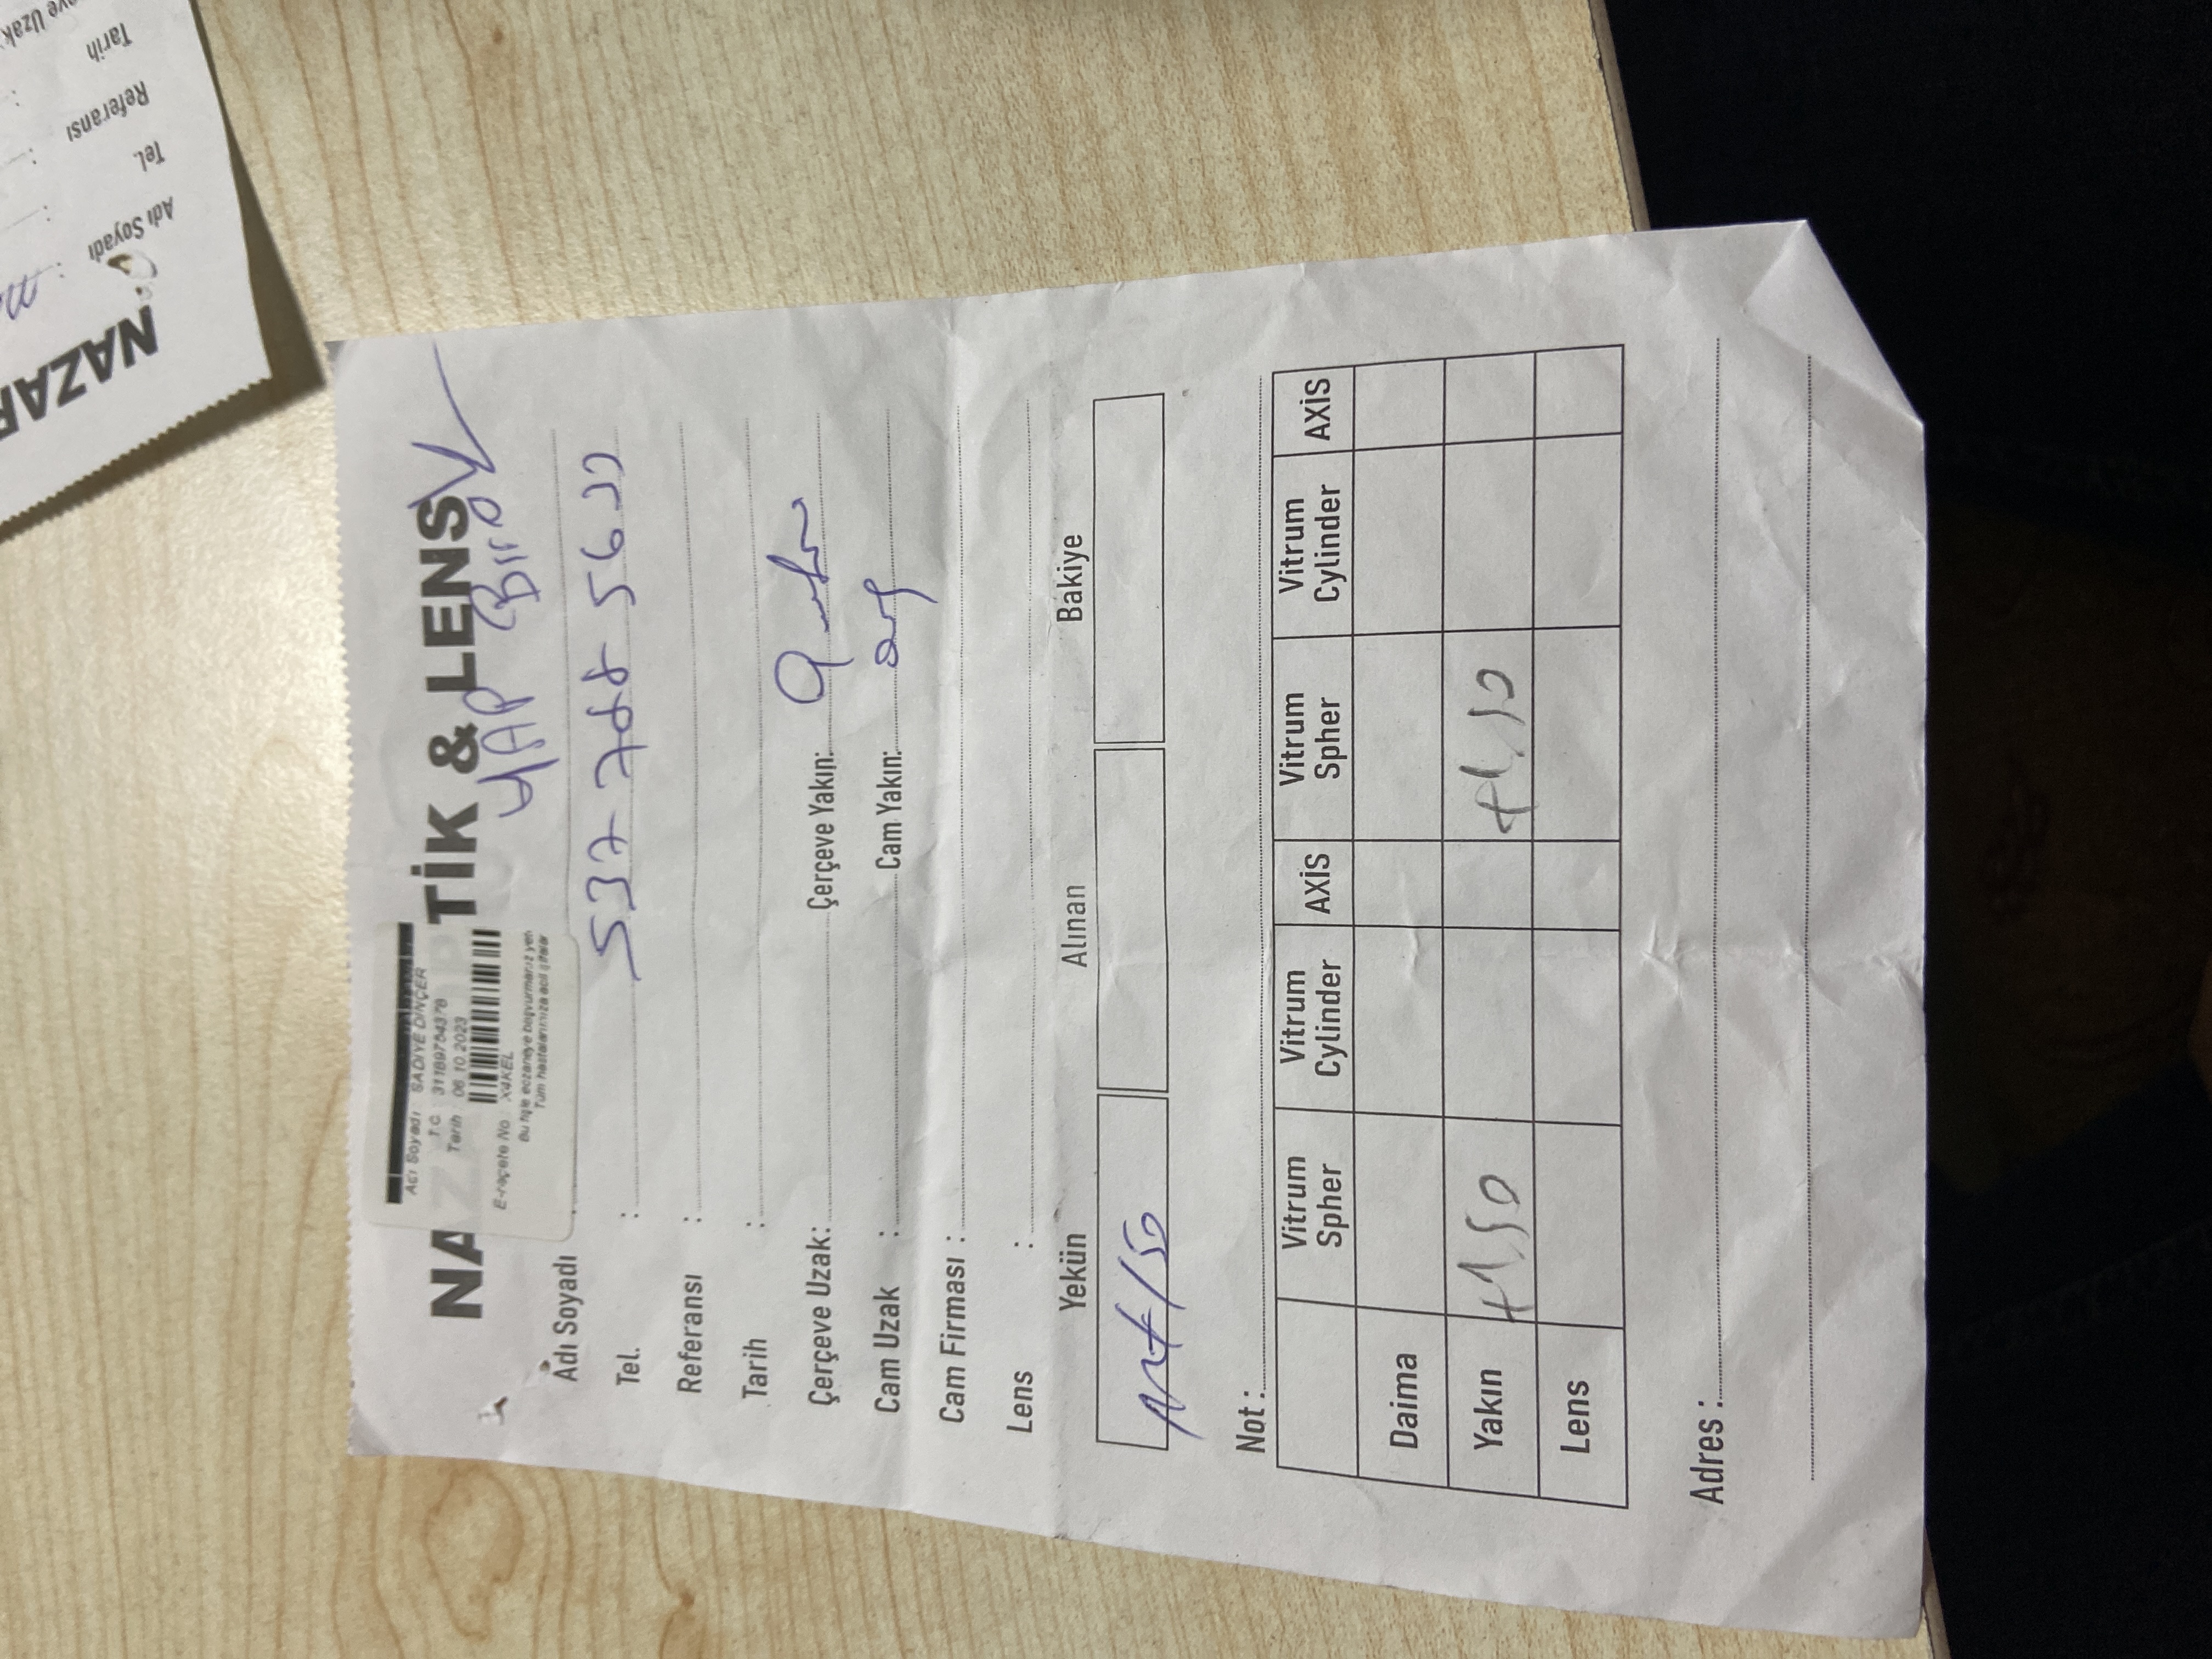 NAZAR
Adı Soyadı :
Tel. :
Referansı :
Tarih
NA TİK & LENS
Adı Soyadı : SADİYE DİNÇER
T.C. 31189754378
Tarih 06.10.2023
E-reçete No : X4KEL
Bu fişle eczaneye başvurmanız yet
Tüm hastalarımıza acil şifalar
YAP
Adı Soyadı :
Tel. : 537 788 56
Referansı :
Tarih :
Çerçeve Uzak: Çerçeve Yakın:
Cam Uzak : Cam Yakın:
Cam Firması :
Lens :
Yekün Alınan Bakiye
150
Not :
Vitrum Spher Vitrum Cylinder AXİS Vitrum Spher Vitrum Cylinder AXİS
Daima
Yakın +1.50 +1.50
Lens
Adres :